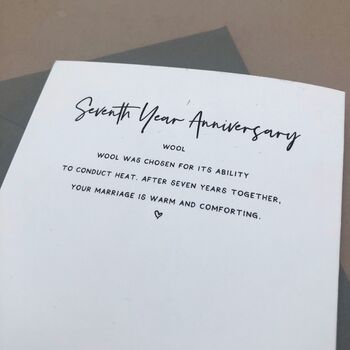 Seventh Year Anniversary
WOOL
WOOL WAS CHOSEN FOR ITS ABILITY
TO CONDUCT HEAT. AFTER SEVEN YEARS TOGETHER,
YOUR MARRIAGE IS WARM AND COMFORTING.